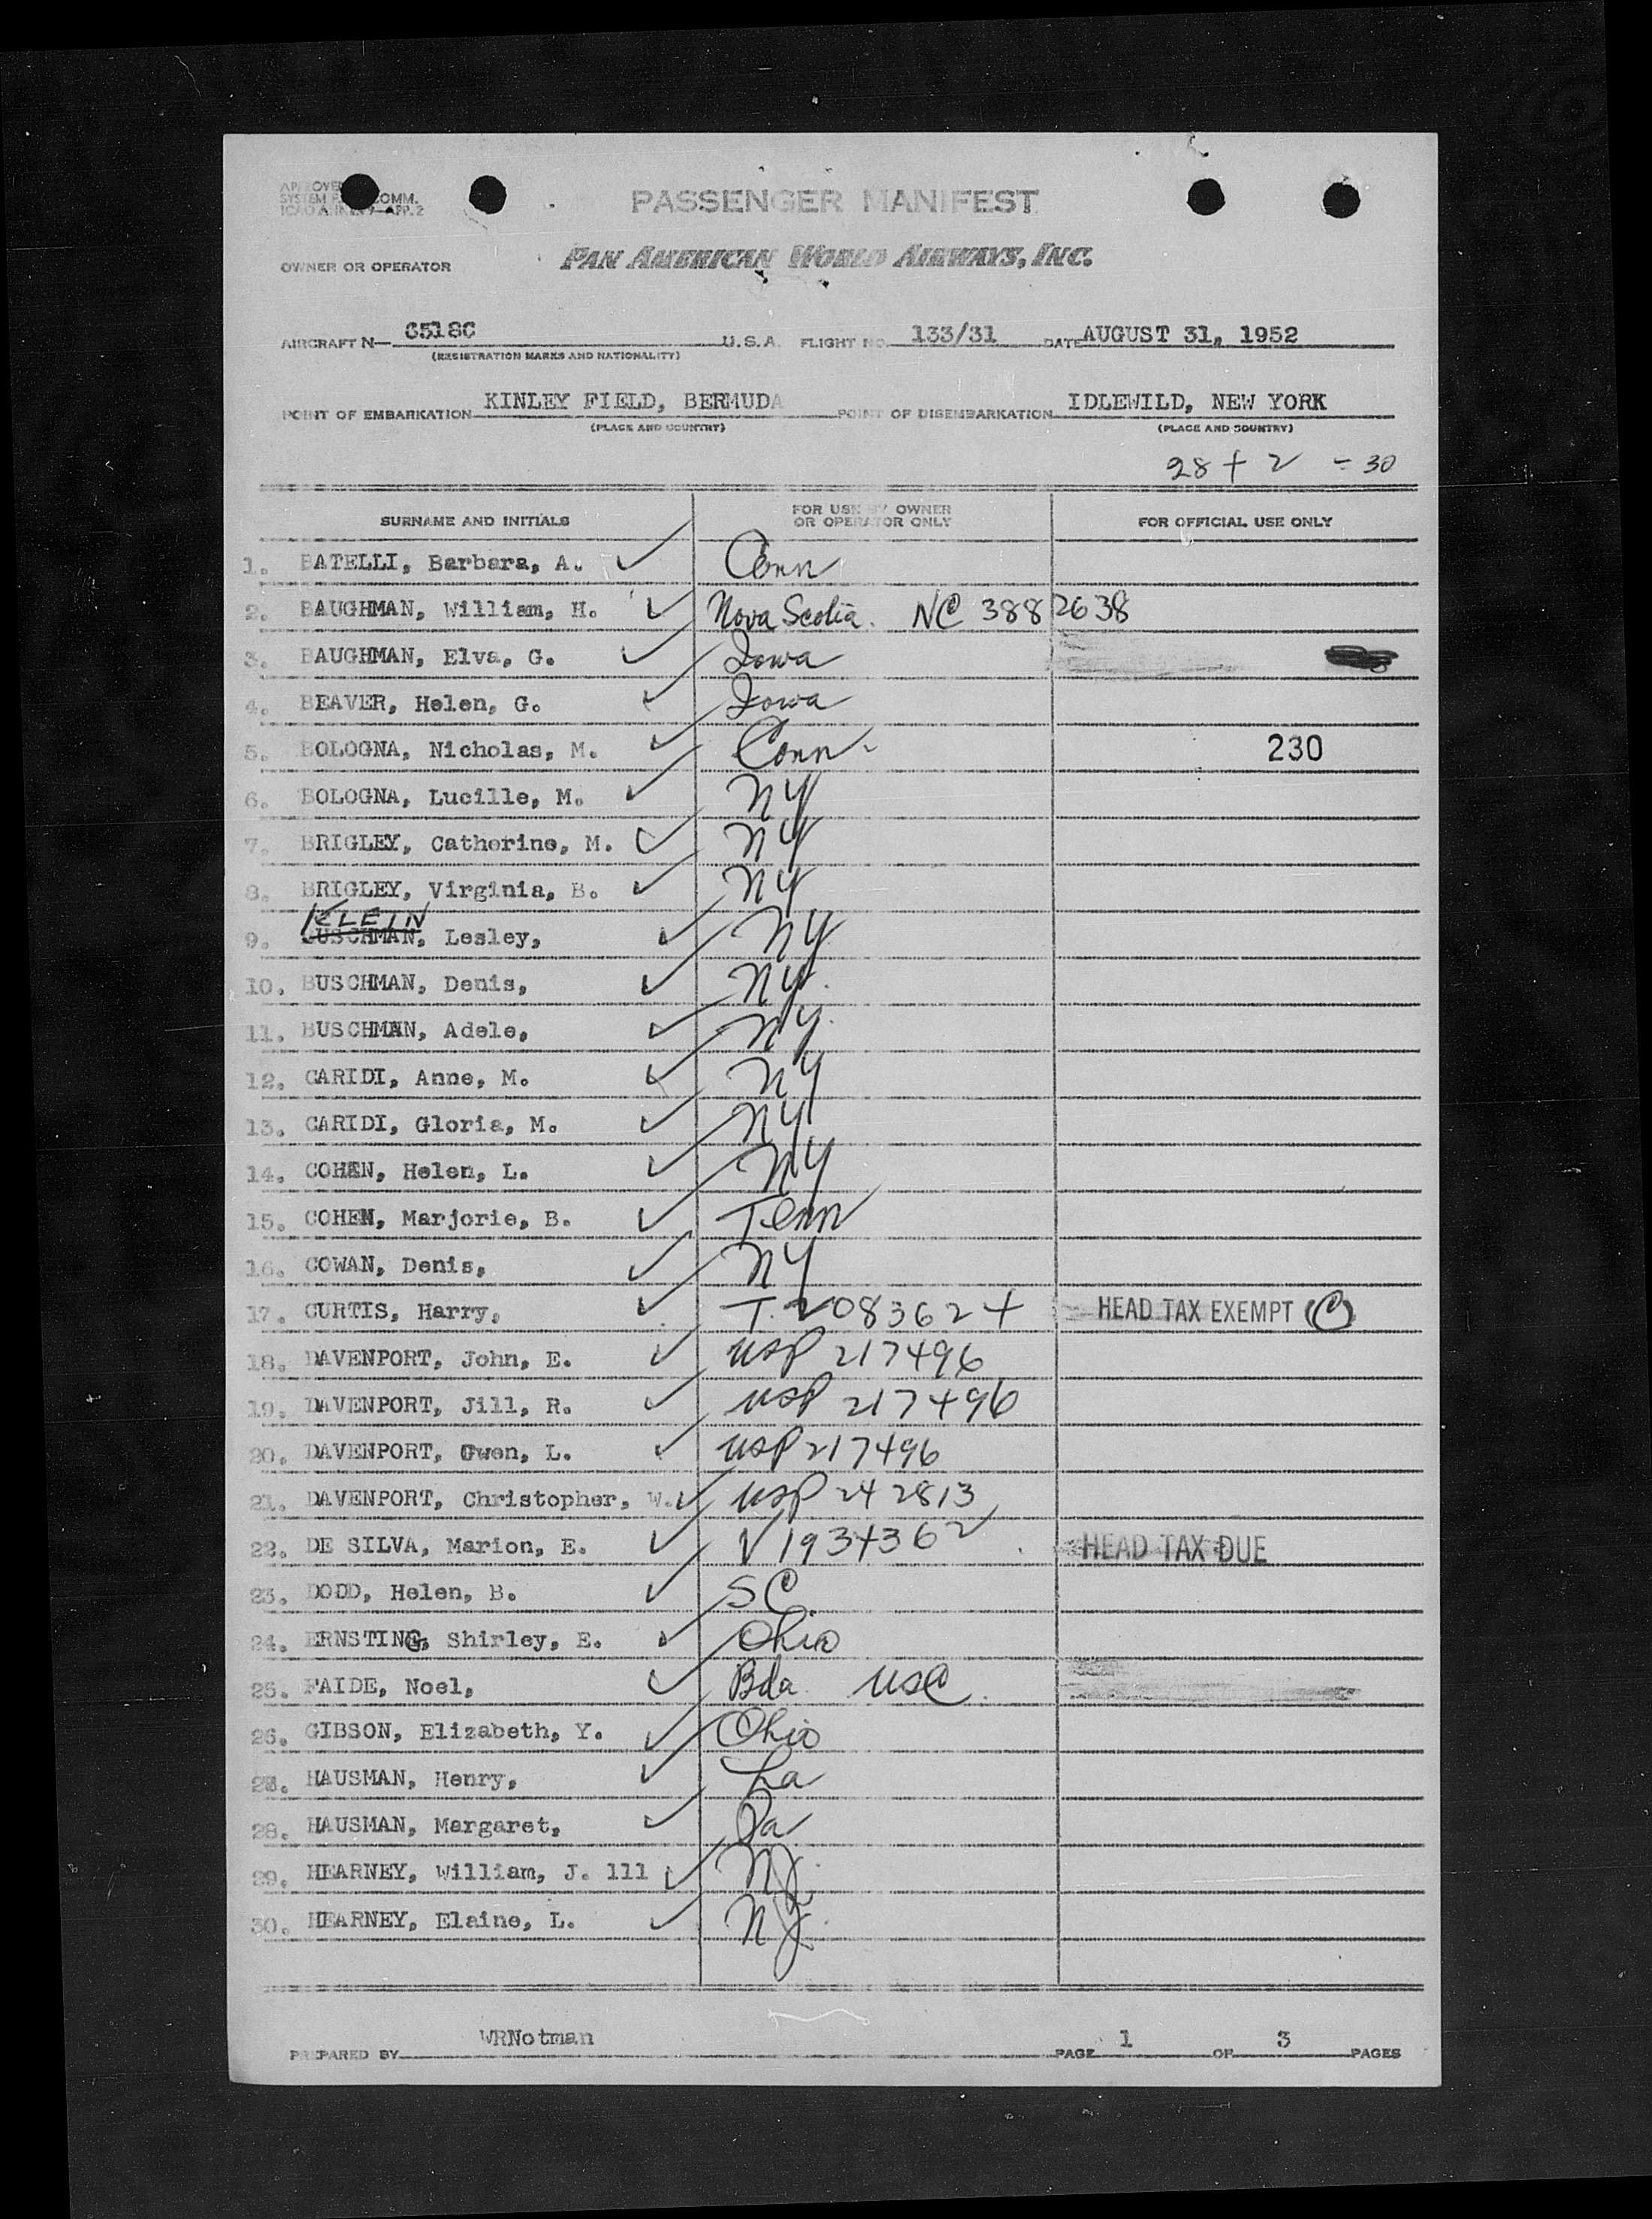 PASSENGER MANIFEST
PAN AMERICAN WORLD AIRWAYS, INC.
OWNER OR OPERATOR
AIRCRAFT N— 6518C U.S.A. FLIGHT NO. 133/31 DATE AUGUST 31, 1952
(REGISTRATION MARKS AND NATIONALITY)
POINT OF EMBARKATION KINLEY FIELD, BERMUDA POINT OF DISEMBARKATION IDLEWILD, NEW YORK
(PLACE AND COUNTRY) (PLACE AND COUNTRY)
28 + 2 = 30
SURNAME AND INITIALS FOR USE BY OWNER OR OPERATOR ONLY FOR OFFICIAL USE ONLY
1. BATELLI, Barbara, A. Conn
2. BAUGHMAN, William, H. Nova Scotia. NC 3882638
3. BAUGHMAN, Elva, G. Iowa
4. BEAVER, Helen, G. Iowa
5. BOLOGNA, Nicholas, M. Conn 230
6. BOLOGNA, Lucille, M. NY
7. BRIGLEY, Catherine, M. NY
8. BRIGLEY, Virginia, B. NY
KLEIN
9. BUSCHMAN, Lesley, NY
10. BUSCHMAN, Denis, NY.
11. BUSCHMAN, Adele, NY.
12. CARIDI, Anne, M. NY
13. CARIDI, Gloria, M. NY
14. COHEN, Helen, L. NY
15. COHEN, Marjorie, B. Tenn
16. COWAN, Denis, NY
17. CURTIS, Harry, T. 2083624 HEAD TAX EXEMPT (C)
18. DAVENPORT, John, E. USP 217496
19. DAVENPORT, Jill, R. USP 217496
20. DAVENPORT, Gwen, L. USP 217496
21. DAVENPORT, Christopher, W. USP 242813
22. DE SILVA, Marion, E. V 1934362 HEAD TAX DUE
23. DODD, Helen, B. SC.
24. ERNSTING, Shirley, E. Ohio
25. FAIDE, Noel, Bda USC.
26. GIBSON, Elizabeth, Y. Ohio
27. HAUSMAN, Henry, La
28. HAUSMAN, Margaret, Pa
29. HEARNEY, William, J. 111 NJ.
30. HEARNEY, Elaine, L. NJ.
PREPARED BY WRNotman PAGE 1 OF 3 PAGES